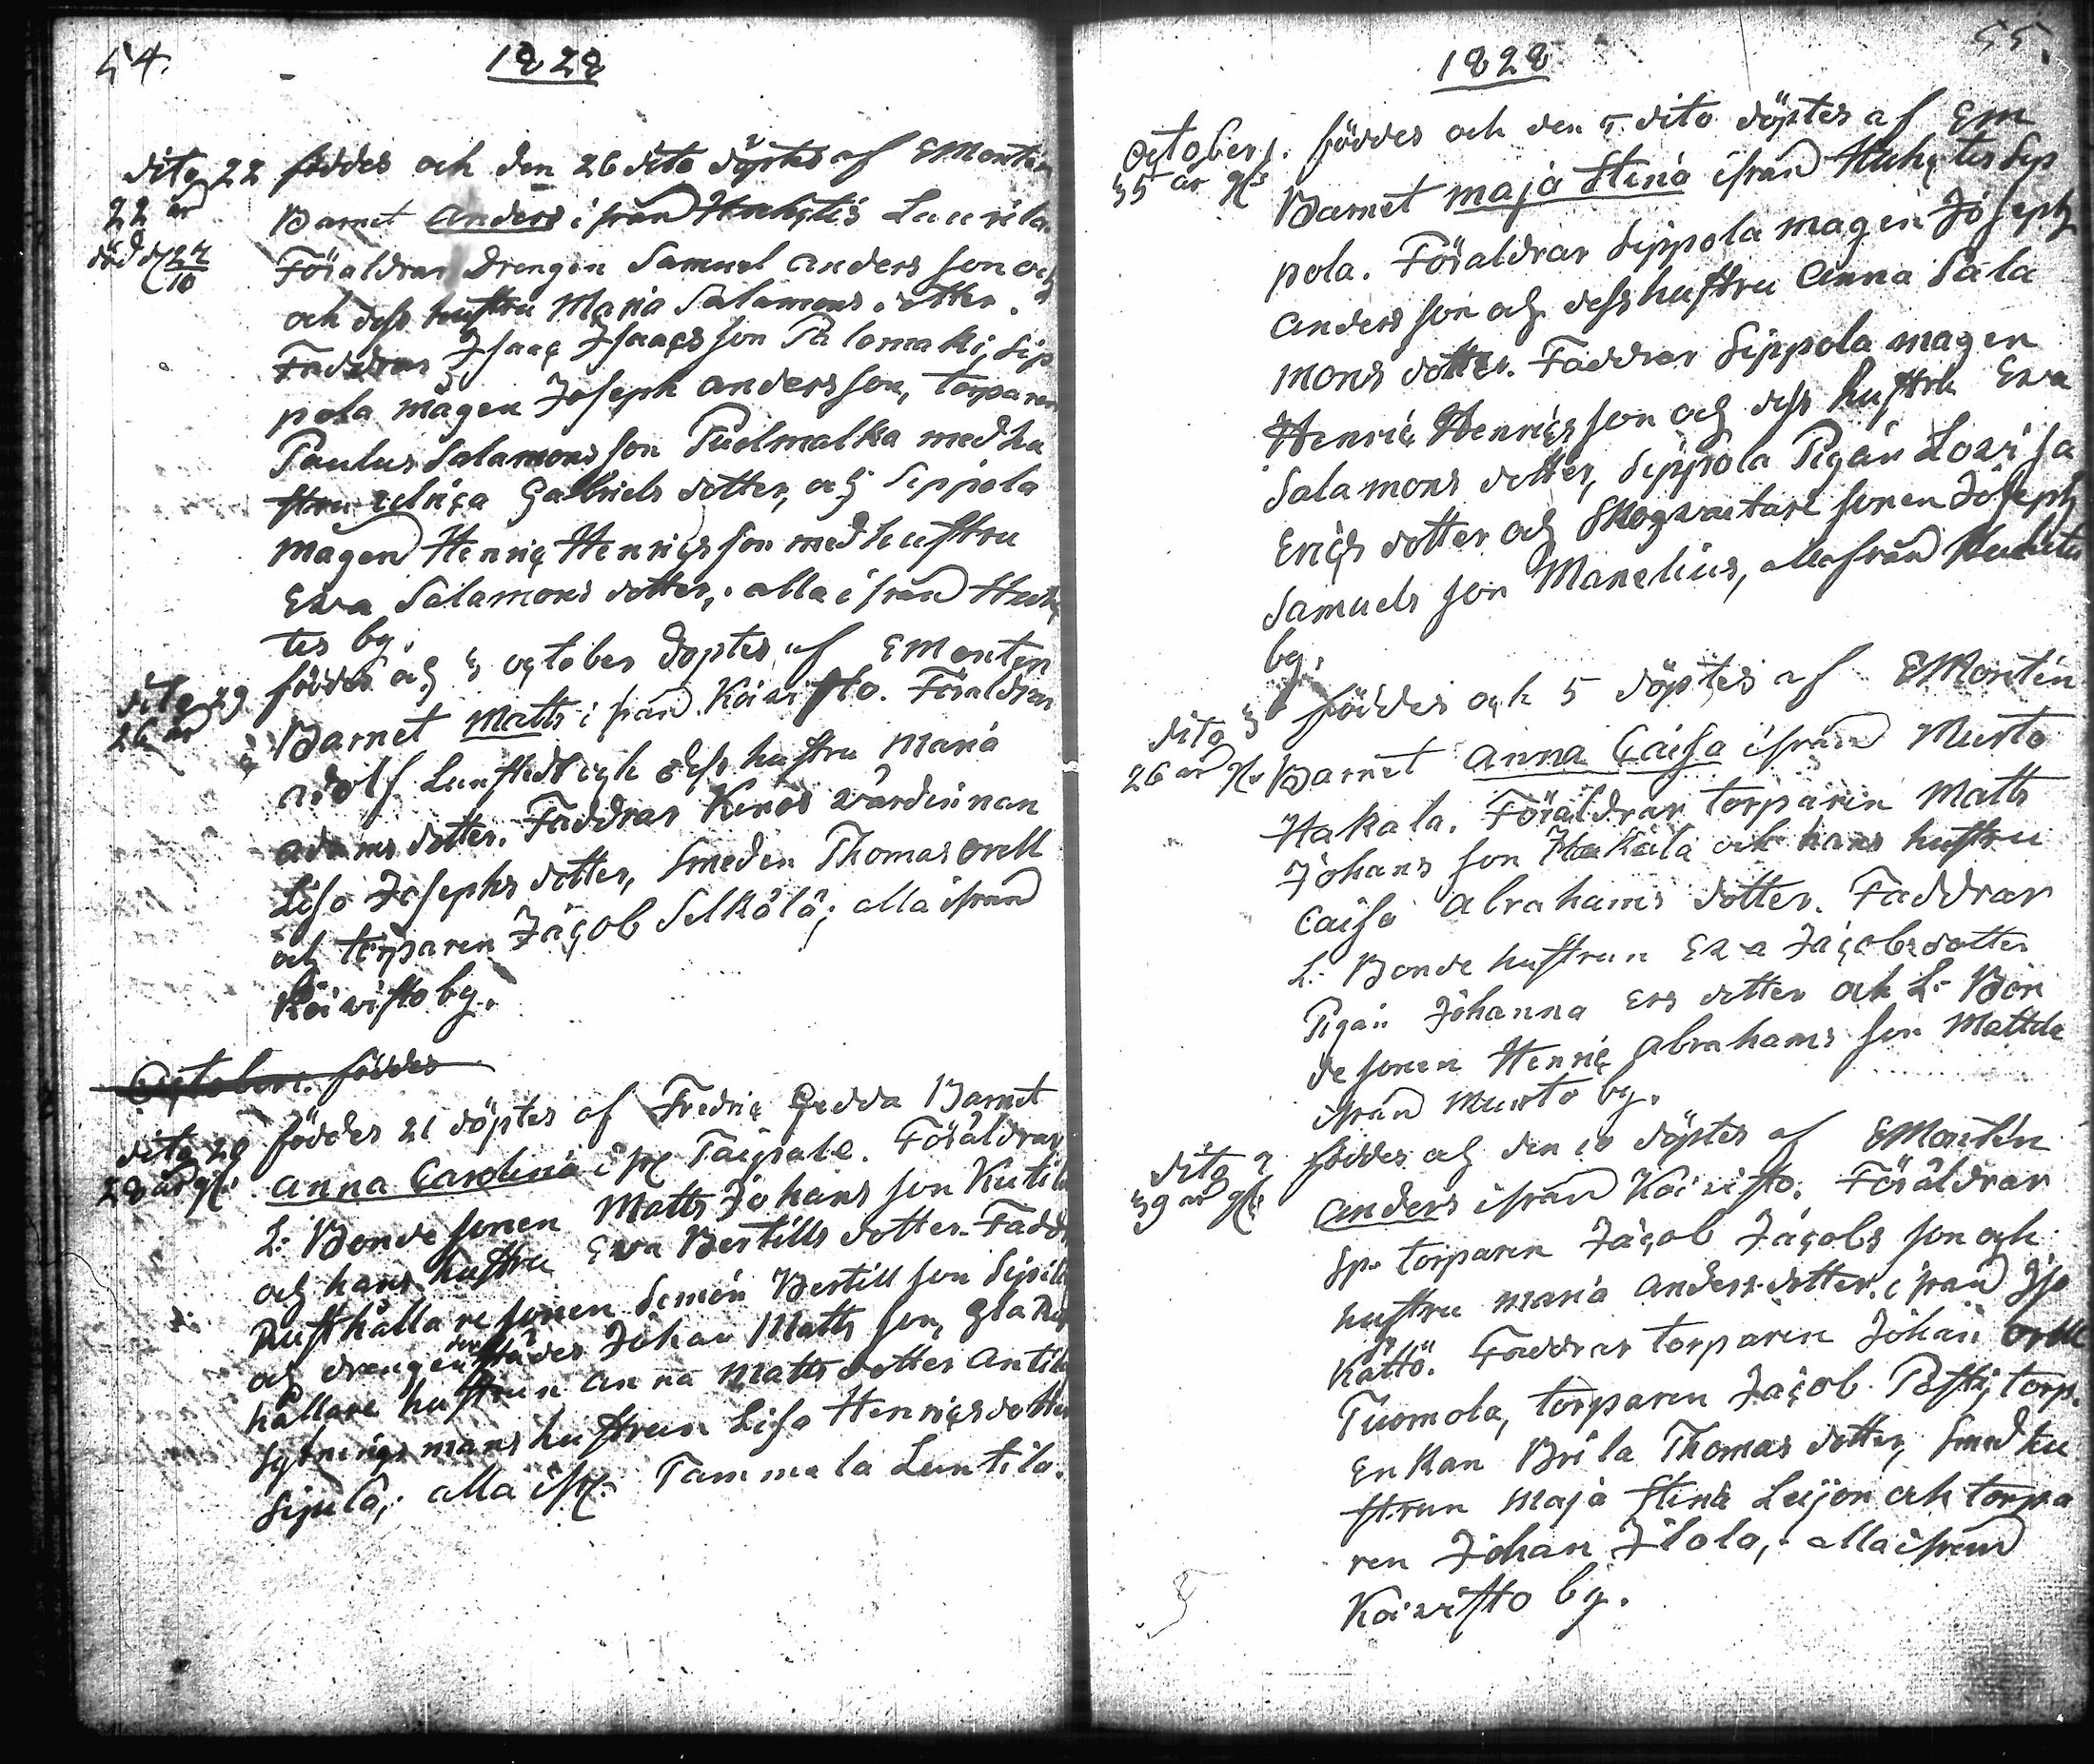 54.
1828
dito 22 föddes och den 26 dito döptes af EMonten
22 år Barnet Anders ifrån Huhtis Laurila.
död d 27/10 Föräldrar Drengen Samuel Anders son och
och dess hustru Maria Salomons dotter.
Faddrar Isaac Isaacs son Palomaki, Sip
pola mågen Joseph Andersson, torparen
Paulus Salamons son Puolmatka med hu
stru Ulrica Gabriels dotter, och Seppola
mågen Henric Henrics son med hustru
Eva Salamons dotter, alla ifrån Huh
tis by.
dito 29 föddes och 3 october döptes af EMonten
26 år Barnet Matts ifrån Koivisto. Föräldrar
Adolf Lunstedt och dess hustru Maria
Adams dotter. Faddrar Keros värdinnan
Lisa Josephs dotter, Smeden Thomas Orell
och torparen Jacob Selkälä; alla ifrån
Koivisto by.
October 1. föddes
dito 20 föddes 21 döptes af Fredric Gedda Barnet
28 år gl. Anna Carolina ifr Taipale. Föräldrar
L. Bonde sonen Matts Johans son Kutila
och hans hustru Eva Bertills dotter. Fadd
Rusthållare sonen Simon Bertill son Sipilä
och drengen der städes Johan Matts son, Gla Rus
hållare hustrun Anna Matts dotter Antila
Sytnings mans hustrun Lisa Henrics dotter
Sipilä; alla ifr. Tammela Luntila.
55.
1828
October 1. föddes och den 5 dito döptes af Em
35 år gl. Barnet Maja Stina ifrån Huhtis Sip
pola. Föräldrar Sippola magen Joseph
Anders son och dess hustru Anna Sala
mons dotter. Faddrar Sippola magen
Henric Henrics son och dess hustru Eva
Salamons dotter, Sippola Pigan Lovisa
Erics dotter och Skogvaktare sonen Joseph
Samuels son Manelius, alla från Huhtis
by.
dito 3 föddes och 5 döptes af EMonten
26 år gl. Barnet Anna Caisa ifrån Murto
Hakala. Föräldrar torparen Matts
Johans son Hakala och hans hustru
Caisa Abrahams dotter. Faddrar
L. Bonde hustrun Eva Jacobsdotter
Pigan Johanna Ers dotter och L. Bon
de sonen Henric Abrahams son Mattila
ifrån Murto by.
dito 7 föddes och den 10 döptes af EMonten
39 år gl. Anders ifrån Koivisto. Föräldrar
Sp. torparen Jacob Jacobs son och
hustru Maria Andersdotter ifrån Iso
Kättö. Faddrar torparen Johan Orell
Tuomola, torparen Jacob Pasti, torp.
Enkan Brita Thomas dotter, Smed hu
strun Maja Stina Leijon och torpa
ren Johan Ilola, alla ifrån
Koivisto by.